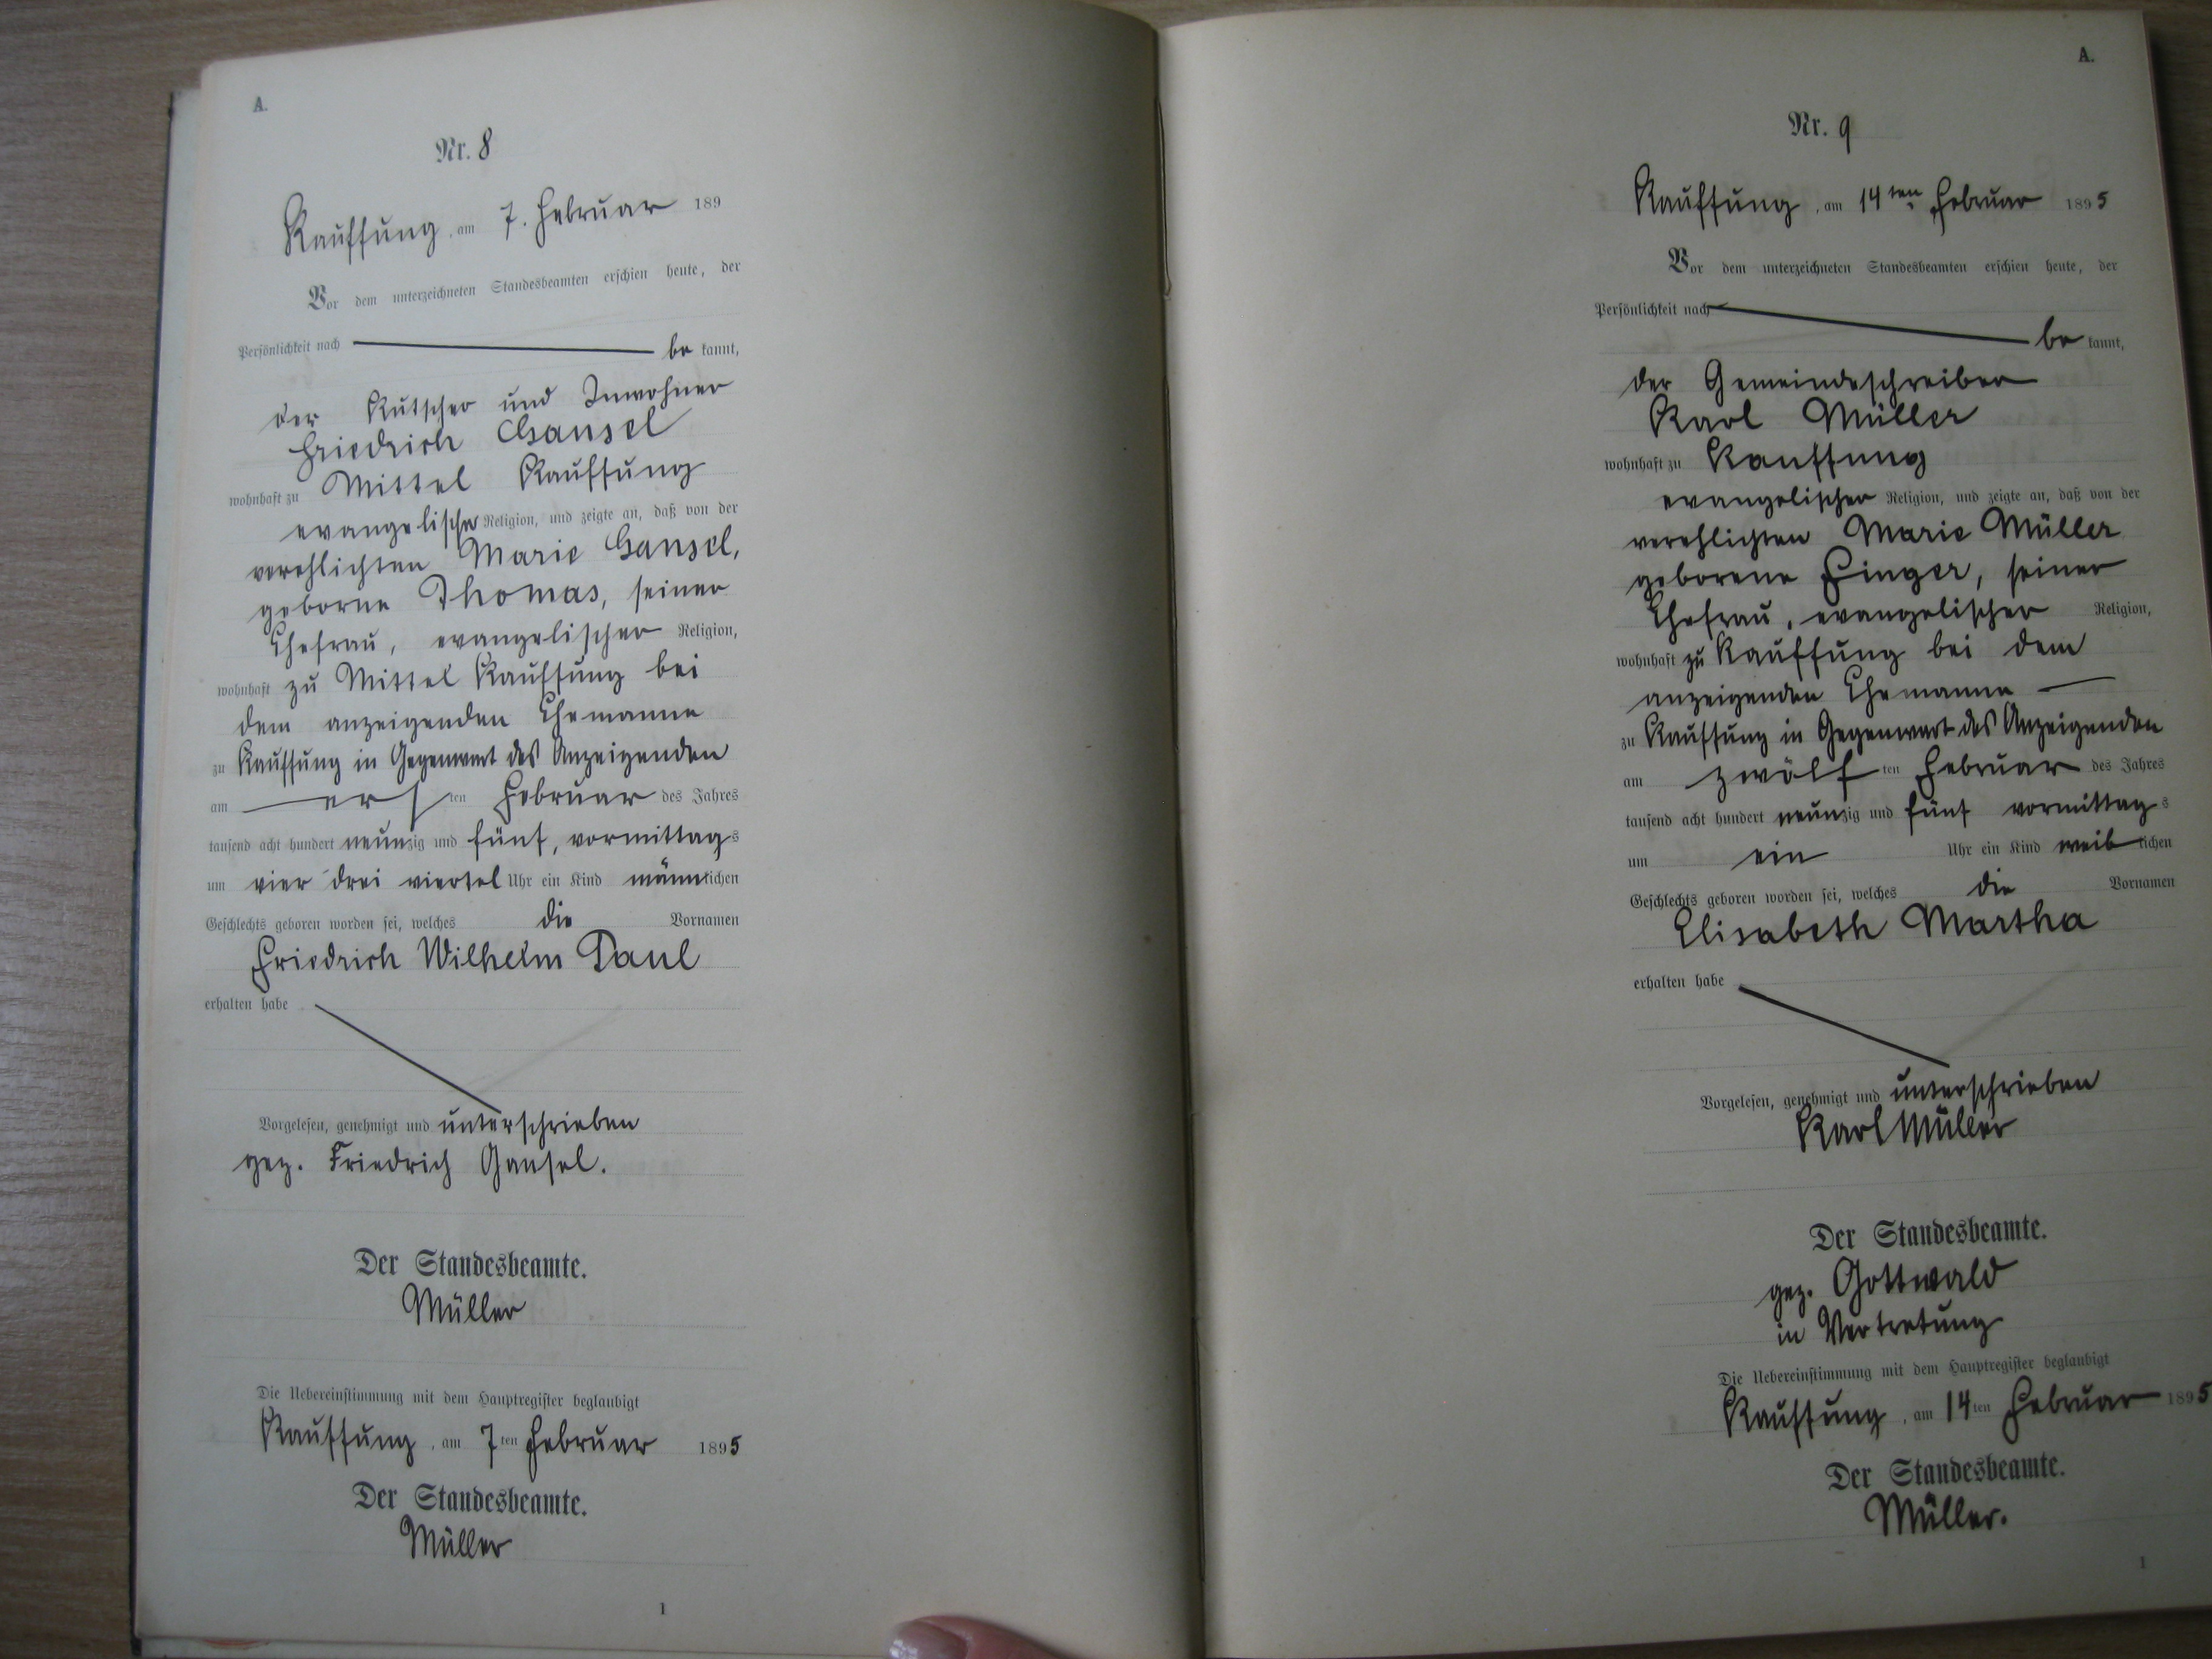 A.
Nr. 8
Kauffung, am 7. Februar 189
Vor dem unterzeichneten Standesbeamten erschien heute, der
Persönlichkeit nach be kannt,
der Kutscher und Inwohner
Friedrich Gansel
wohnhaft zu Mittel Kauffung
evangelischer Religion, und zeigte an, daß von der
verehlichten Marie Gansel,
geborne Thomas, seiner
Ehefrau, evangelischer Religion,
wohnhaft zu Mittel Kauffung bei
dem anzeigenden Ehemanne
zu Kauffung in Gegenwart des Anzeigenden
am ersten Februar des Jahres
tausend acht hundert neunzig und fünf, vormittags
um vier drei viertel Uhr ein Kind männlichen
Geschlechts geboren worden sei, welches die Vornamen
Friedrich Wilhelm Paul
erhalten habe
Vorgelesen, genehmigt und unterschrieben
gez. Friedrich Gansel.
Der Standesbeamte.
Müller
Die Uebereinstimmung mit dem Hauptregister beglaubigt
Kauffung, am 7ten Februar 1895
Der Standesbeamte.
Müller
1
A.
Nr. 9
Kauffung, am 14ten Februar 1895
Vor dem unterzeichneten Standesbeamten erschien heute, der
Persönlichkeit nach be kannt,
der Gemeindeschreiber
Karl Müller
wohnhaft zu Kauffung
evangelischer Religion, und zeigte an, daß von der
verehlichten Marie Müller
geborene Finger, seiner
Ehefrau, evangelischer Religion,
wohnhaft zu Kauffung bei dem
anzeigenden Ehemanne
zu Kauffung in Gegenwart des Anzeigenden
am zwölften Februar des Jahres
tausend acht hundert neunzig und fünf vormittags
um ein Uhr ein Kind weiblichen
Geschlechts geboren worden sei, welches die Vornamen
Elisabeth Martha
erhalten habe
Vorgelesen, genehmigt und unterschrieben
Karl Müller
Der Standesbeamte.
gez. Gottwald
in Vertretung
Die Uebereinstimmung mit dem Hauptregister beglaubigt
Kauffung, am 14ten Februar 1895
Der Standesbeamte.
Müller.
1